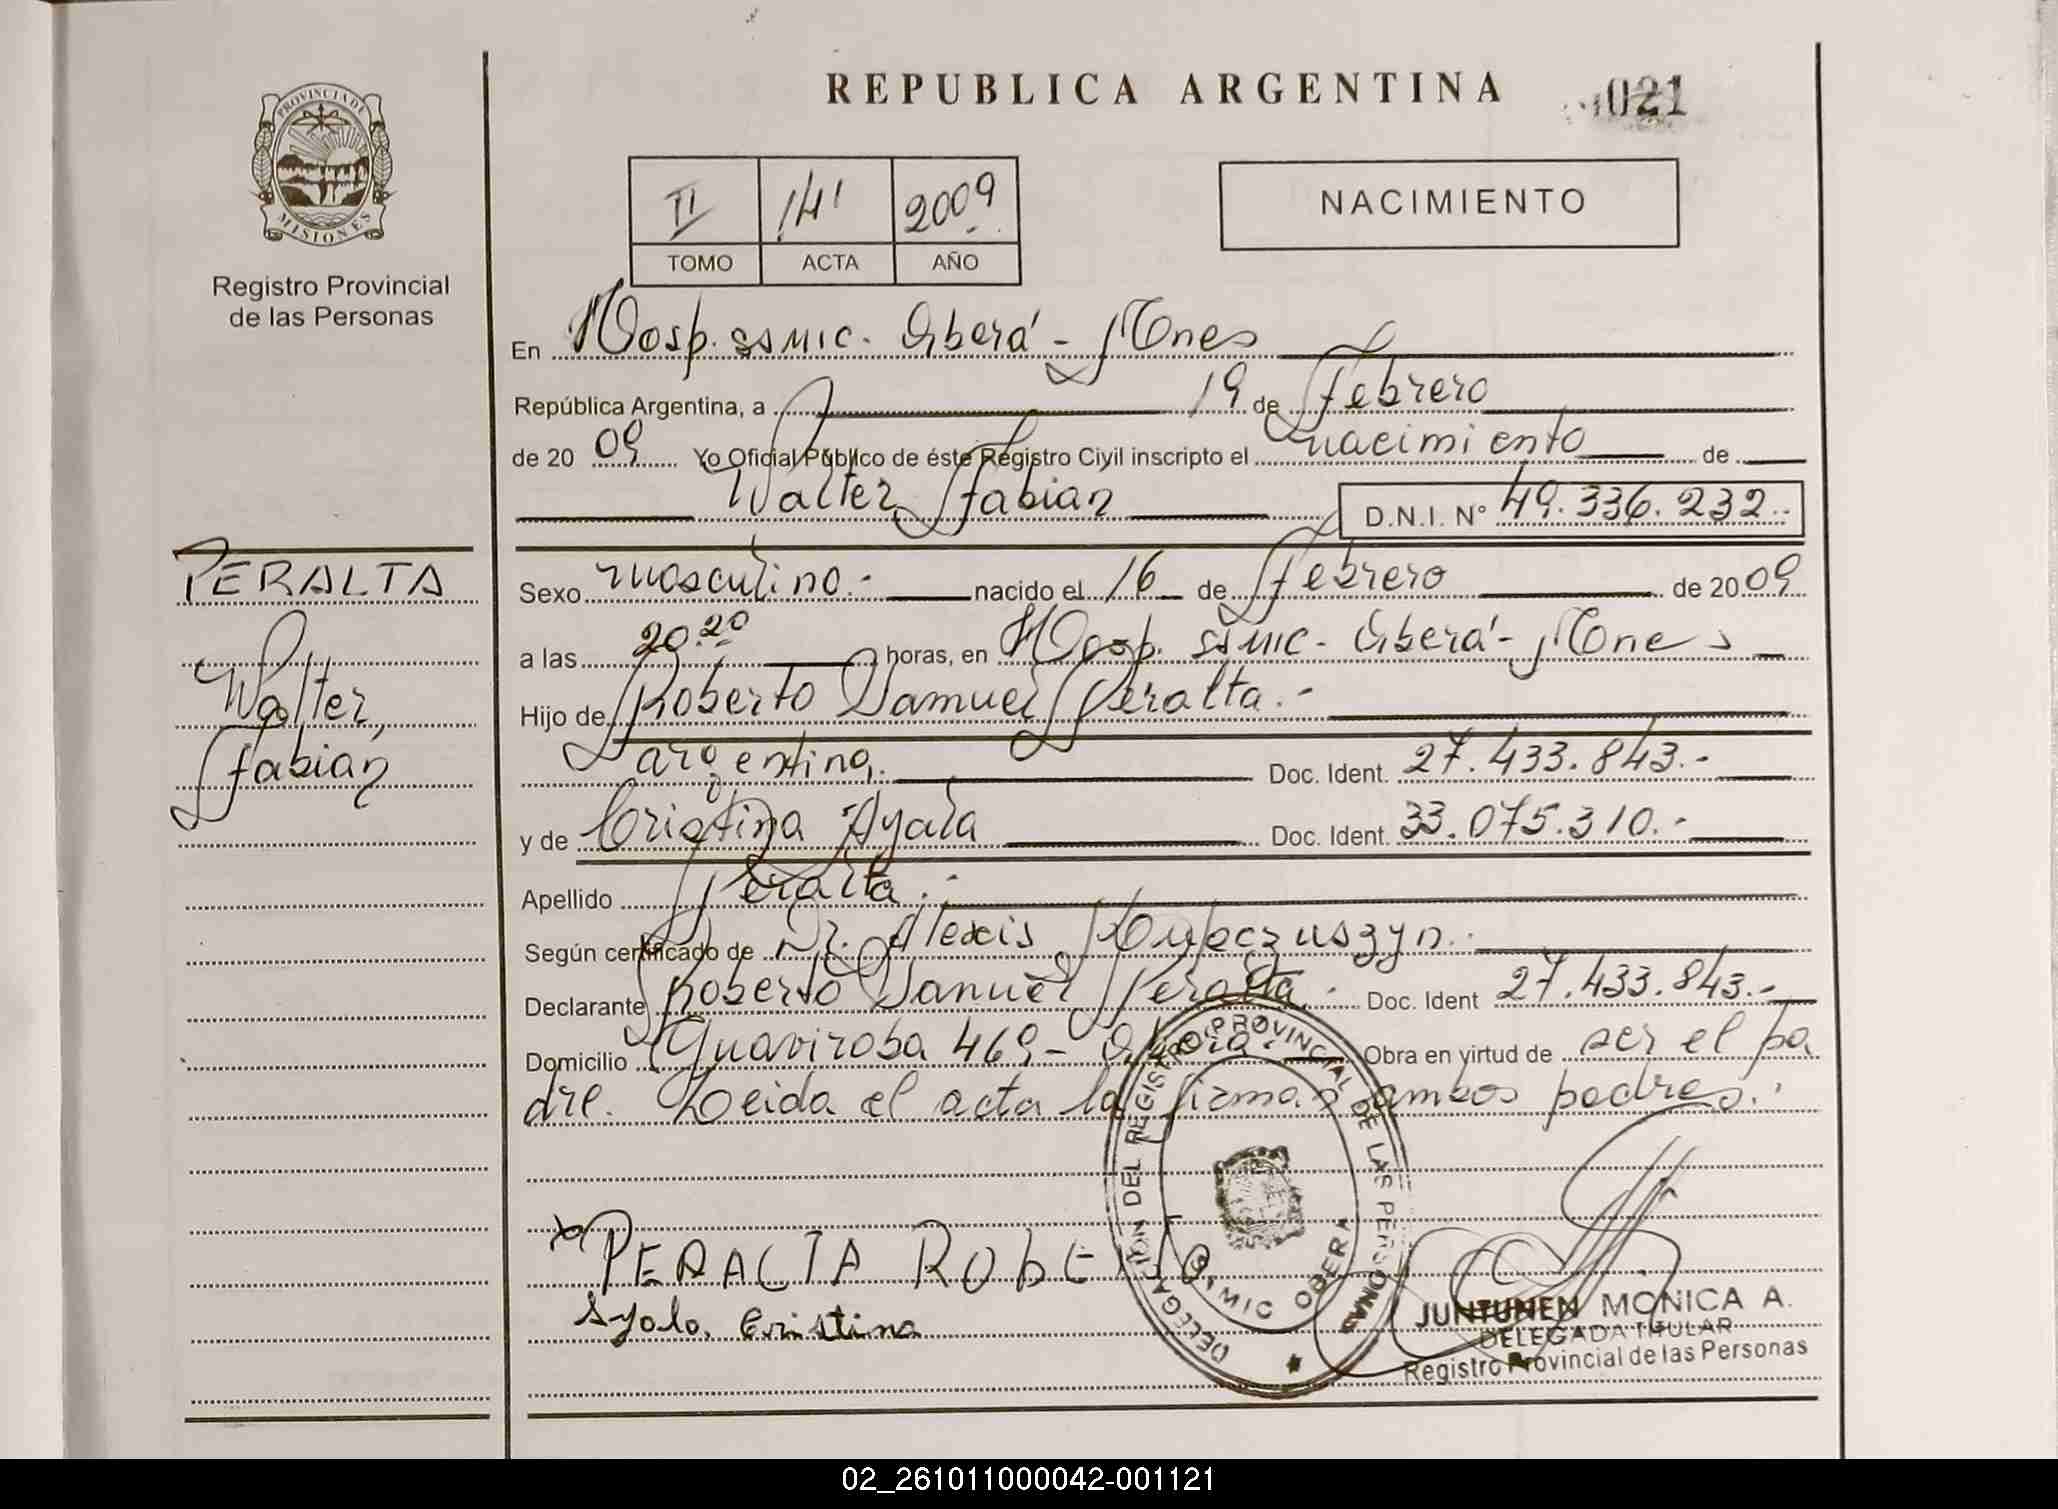 REPUBLICA ARGENTINA
021
PROVINCIA DE
MISIONES
Registro Provincial
de las Personas
II 141 2009
TOMO ACTA AÑO
NACIMIENTO
En Hosp. SAMIC. Oberá - Mones
República Argentina, a 19 de Febrero
de 20 09 Yo Oficial Público de éste Registro Civil inscripto el nacimiento de
Walter Fabian D.N.I. N° 49.336.232
PERALTA
Walter,
Fabian
Sexo masculino.- nacido el 16 de Febrero de 20 09
a las 20.20 horas, en Hosp. SAMIC - Oberá - Mones
Hijo de Roberto Samuel Peralta.-
argentina. Doc. Ident. 27.433.843.-
y de Cristina Ayala Doc. Ident. 33.075.310.-
Apellido Peralta.-
Según certificado de Dr. Alexis
Declarante Roberto Samuel Peralta.- Doc. Ident 27.433.843.-
Domicilio Guaviroba 469 - Oberá. Obra en virtud de ser el pa
dre. Leida el acta la firman ambos padres.-
PERALTA ROBERTO
Ayala. Cristina
DELEGACION DEL REGISTRO PROVINCIAL DE LAS PERSONAS
SAMIC OBERA
JUNTUNEN MONICA A.
DELEGADA TITULAR
Registro Provincial de las Personas
02_261011000042-001121